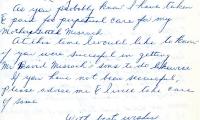 As you probably know I have taken
& paid for perpetual care for my
Mother, Mrs
At this time I would like to know
if you were successful in getting
Mr. David sons to do likewise
If you have not been successful,
please advise me & I will take care
of same
With best wishes